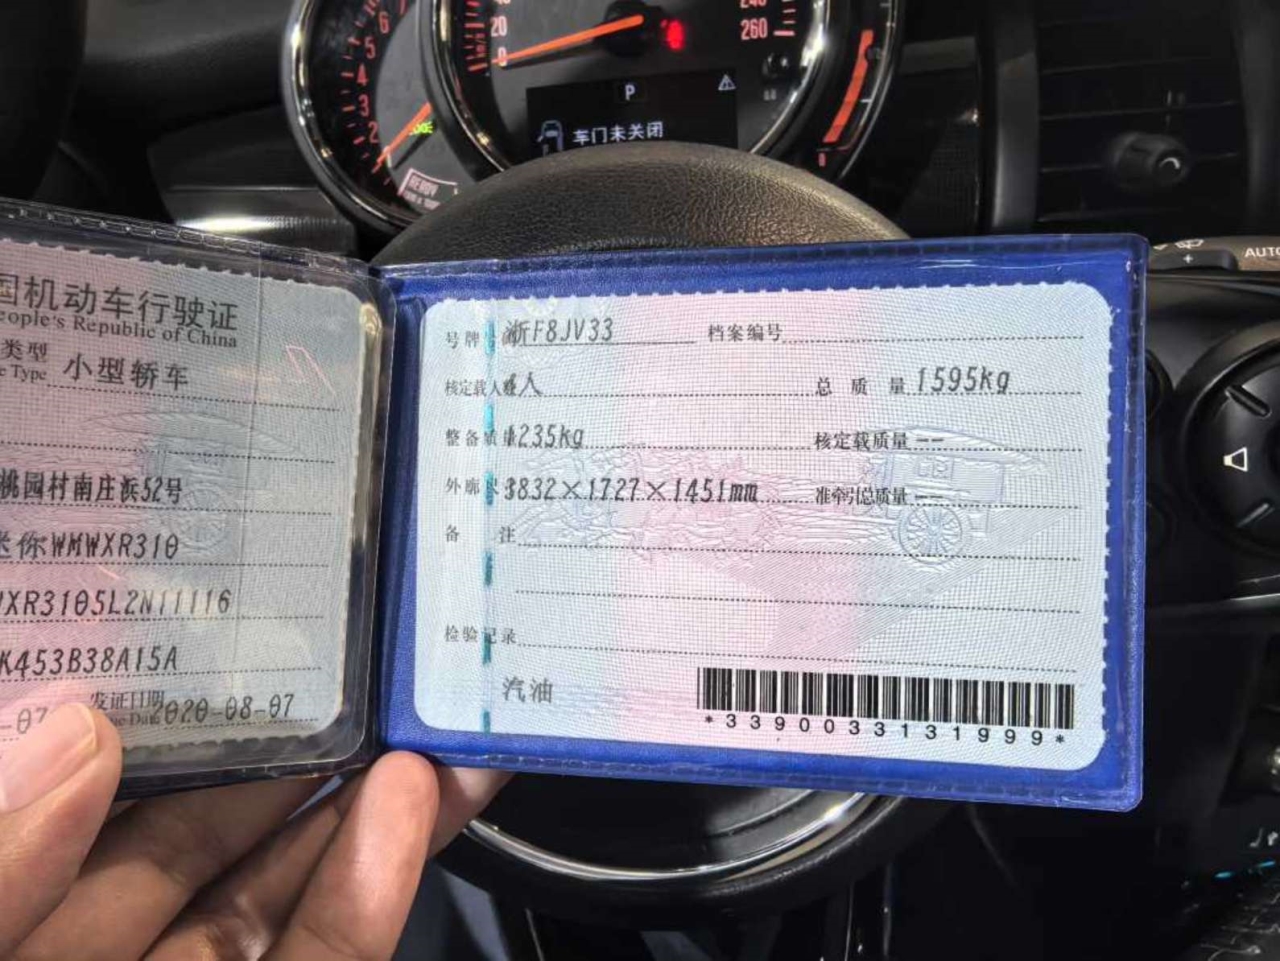 20
0
260
6
5
4
3
2
P
车门未关闭
READY
国机动车行驶证
eople's Republic of China
类型
e Type 小型轿车
桃园村南庄浜52号
迷你WMWXR310
XR3105L2N11116
K453B38A15A
-07 发证日期 020-08-07
号牌 浙F8JV33 档案编号
核定载人数 4人 总 质 量 1595kg
整备质量 1235kg 核定载质量 --
外廓尺 3832×1727×1451mm 准牵引总质量 --
备 注
检验记录
汽油
*3390033131999*
AUTO